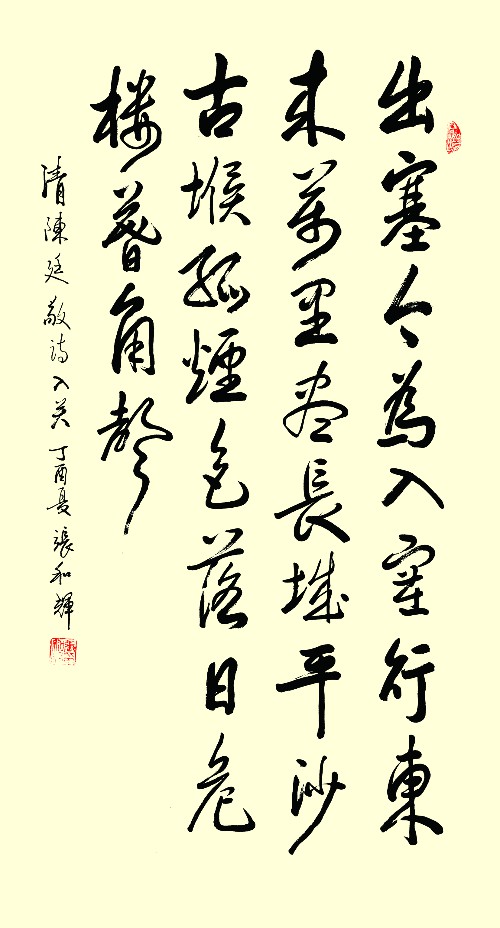 出塞今為入塞行東
来萬里尽長城平沙
古堠孤煙色落日危
楼暮角聲
清陳廷敬詩入关 丁酉夏 張和輝